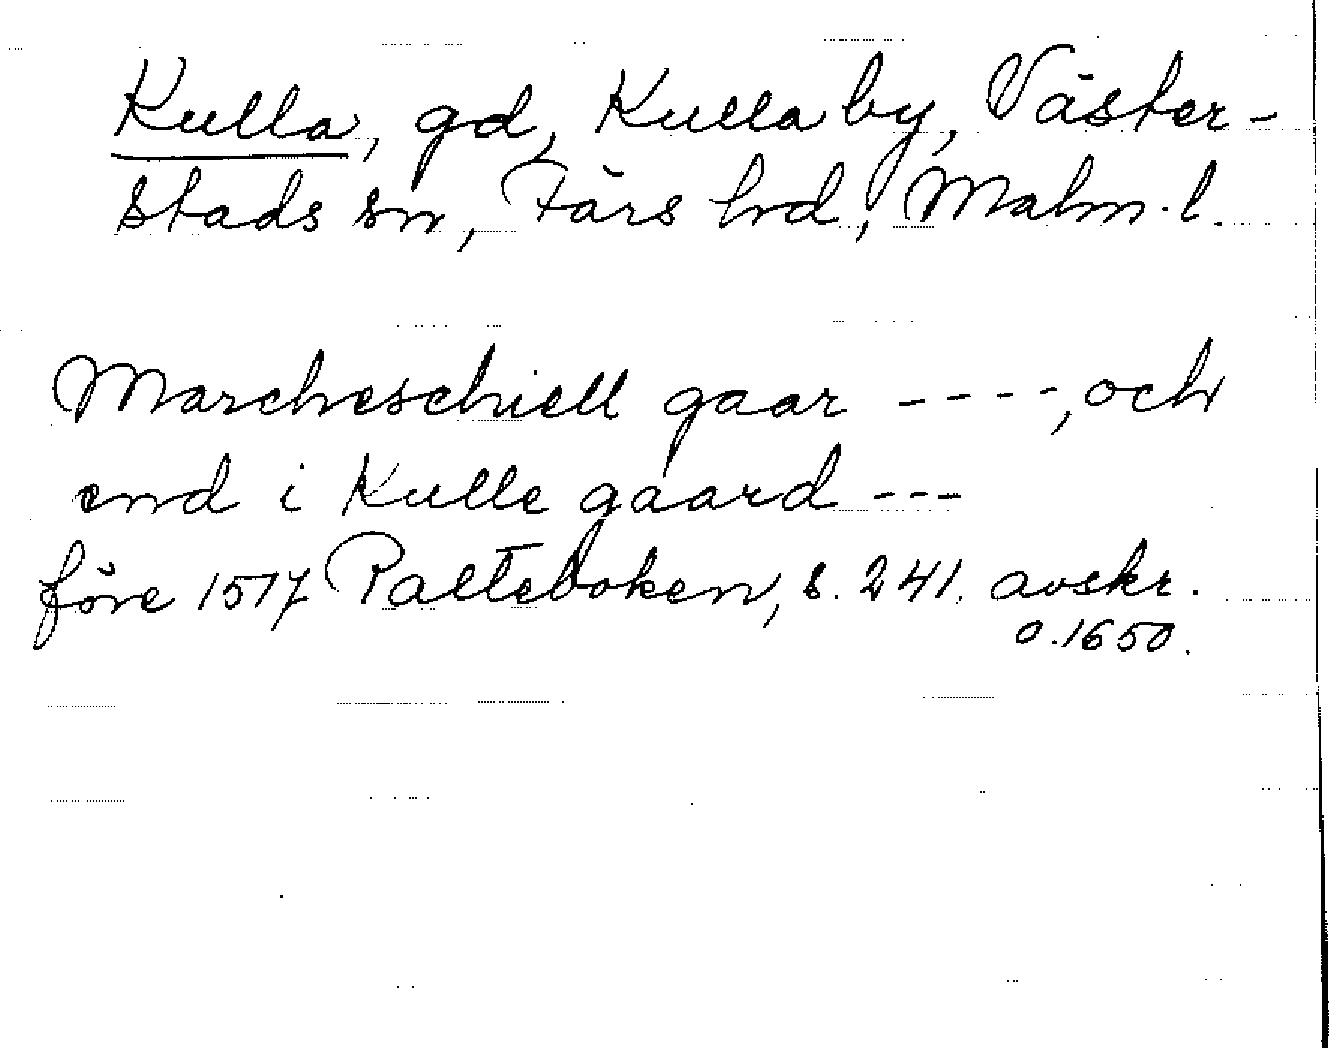 Kulla, gd, Kullaby, Väster-
stads sn, Färs hrd, Malm. l.
Marcheschiell gaar ----, och
end i Kulle gaard ---
före 1517 Palteboken, s. 241. avskr.
o. 1650.